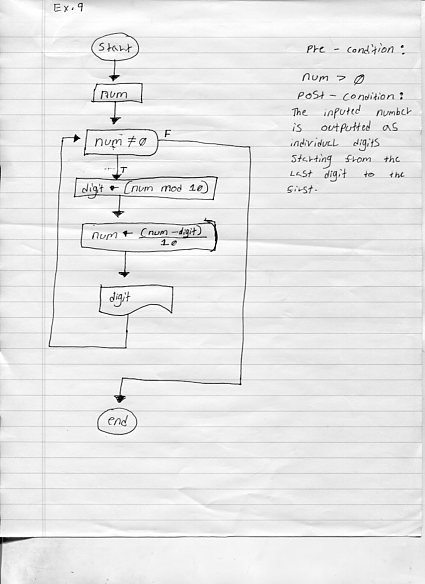 Ex.9
Start
num
num ≠ 0
F
T
digit ← (num mod 10)
num ← (num - digit)
10
digit
end
Pre - condition:
num > 0
Post - condition:
The inputed number
is outputted as
individual digits
starting from the
last digit to the
first.